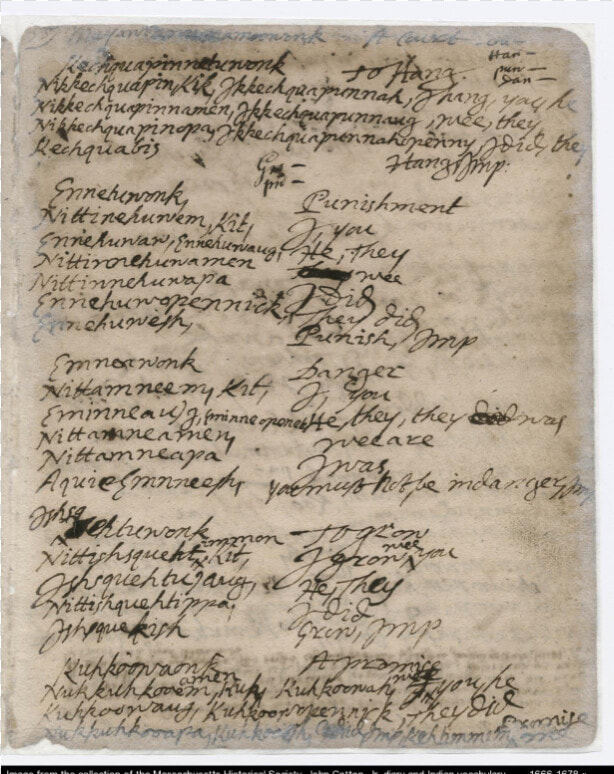 A Court
Kechquapinnetuwonk To Hang. Han- pun- Dan-
Nikkechquapin, Kik, Jkkechquapunnah, J hang, you, he
Nikkechquapinnamen, Jkkechquapunnaug, wee, they
Nikkechquapinopa, Jkkechquapunnahopenny, J did, they
Kechquabis Hang, Jmp:
pu-
Ennehuwonk, Punishment
Nittinehuwem, Kit, J, you
Ennehuwau, Ennehuwaug, He, they
Nittinnehuwamen wee
Nittinnehuwapa J did
Ennehuwopennick, They did
Ennehuwesh, Punish, Jmp
Emneawonk Danger
Nittamneem, Kit, J, you
Eminneau, g, Eminneopenek, He, they, they was
Nittamneamen, wee are
Nittamneapa J was
Aquie Emnneesh, you must not be in danger, Jmp
Jshsq
ehtuwonk To grow
Nittishsqueht, immon Kit, J grow, wee you
Jshsquehtu, aug, He, They
Nittishquehtippa, J did
Jshquekish Grow, Jmp
Kuhkoowaonk A promise
Nukkuhkooem, amen Kuk, Kuhkoowah, J, wee you, he
Kuhkoowaug, Kuhkoowopennick, They did
Nukkuhkooapa, Kuhkoosh, J did, Jmp promise
Image from the collection of the Massachusetts Historical Society. John Cotton, Jr. diary and Indian vocabulary 1666-1678